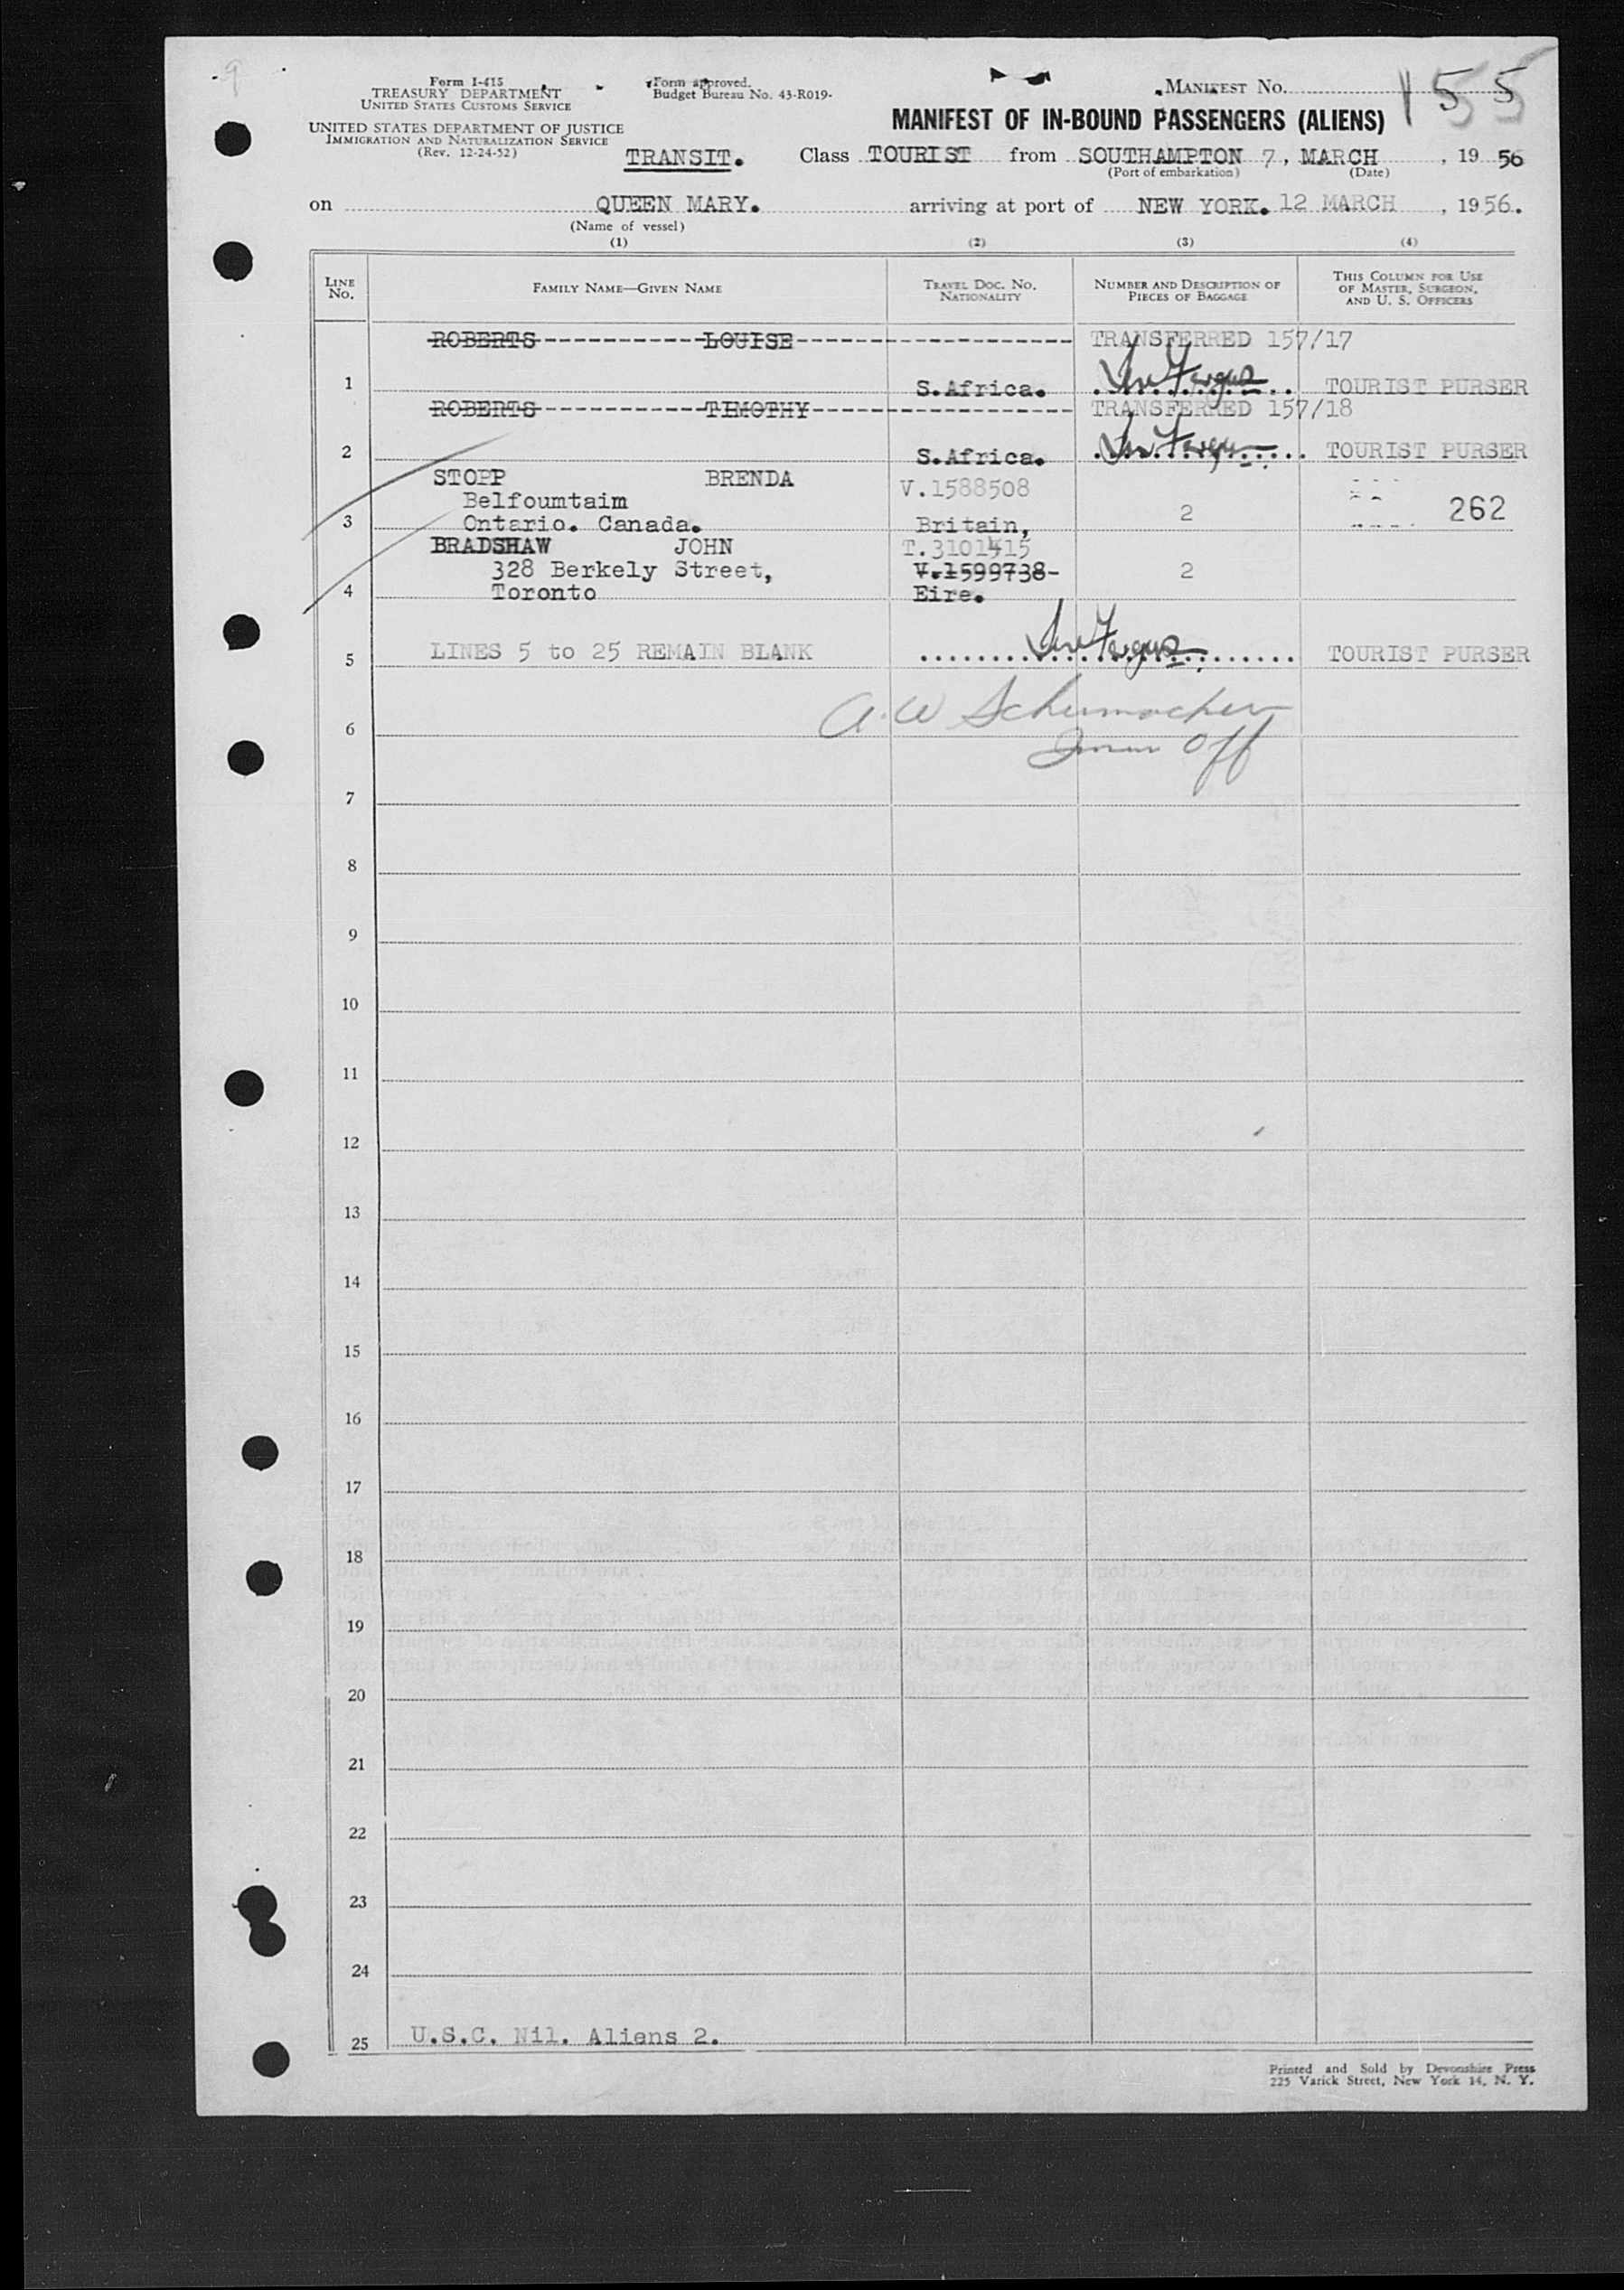 9
Form I-415
TREASURY DEPARTMENT
UNITED STATES CUSTOMS SERVICE
UNITED STATES DEPARTMENT OF JUSTICE
IMMIGRATION AND NATURALIZATION SERVICE
(Rev. 12-24-52)
Form approved.
Budget Bureau No. 43-R019-
MANIFEST No. 155
MANIFEST OF IN-BOUND PASSENGERS (ALIENS)
TRANSIT. Class TOURIST from SOUTHAMPTON 7, MARCH, 19 56
(Port of embarkation) (Date)
on QUEEN MARY. arriving at port of NEW YORK. 12 MARCH, 1956.
(Name of vessel)
(1) (2) (3) (4)
LINE No. FAMILY NAME—GIVEN NAME TRAVEL DOC. No. NATIONALITY NUMBER AND DESCRIPTION OF PIECES OF BAGGAGE THIS COLUMN FOR USE OF MASTER, SURGEON, AND U. S. OFFICERS
ROBERTS LOUISE TRANSFERRED 157/17
1 S.Africa. TOURIST PURSER
ROBERTS TIMOTHY TRANSFERRED 157/18
2 S.Africa. TOURIST PURSER
STOPP BRENDA V.1588508
Belfoumtaim 2 262
3 Ontario. Canada. Britain,
BRADSHAW JOHN T.3101415
328 Berkely Street, V.1599738- 2
4 Toronto Eire.
5 LINES 5 to 25 REMAIN BLANK TOURIST PURSER
A.W Schumacher
6
Imm Off
7
8
9
10
11
12
13
14
15
16
17
18
19
20
21
22
23
24
25 U.S.C. Nil. Aliens 2.
Printed and Sold by Devonshire Press
225 Varick Street, New York 14, N. Y.